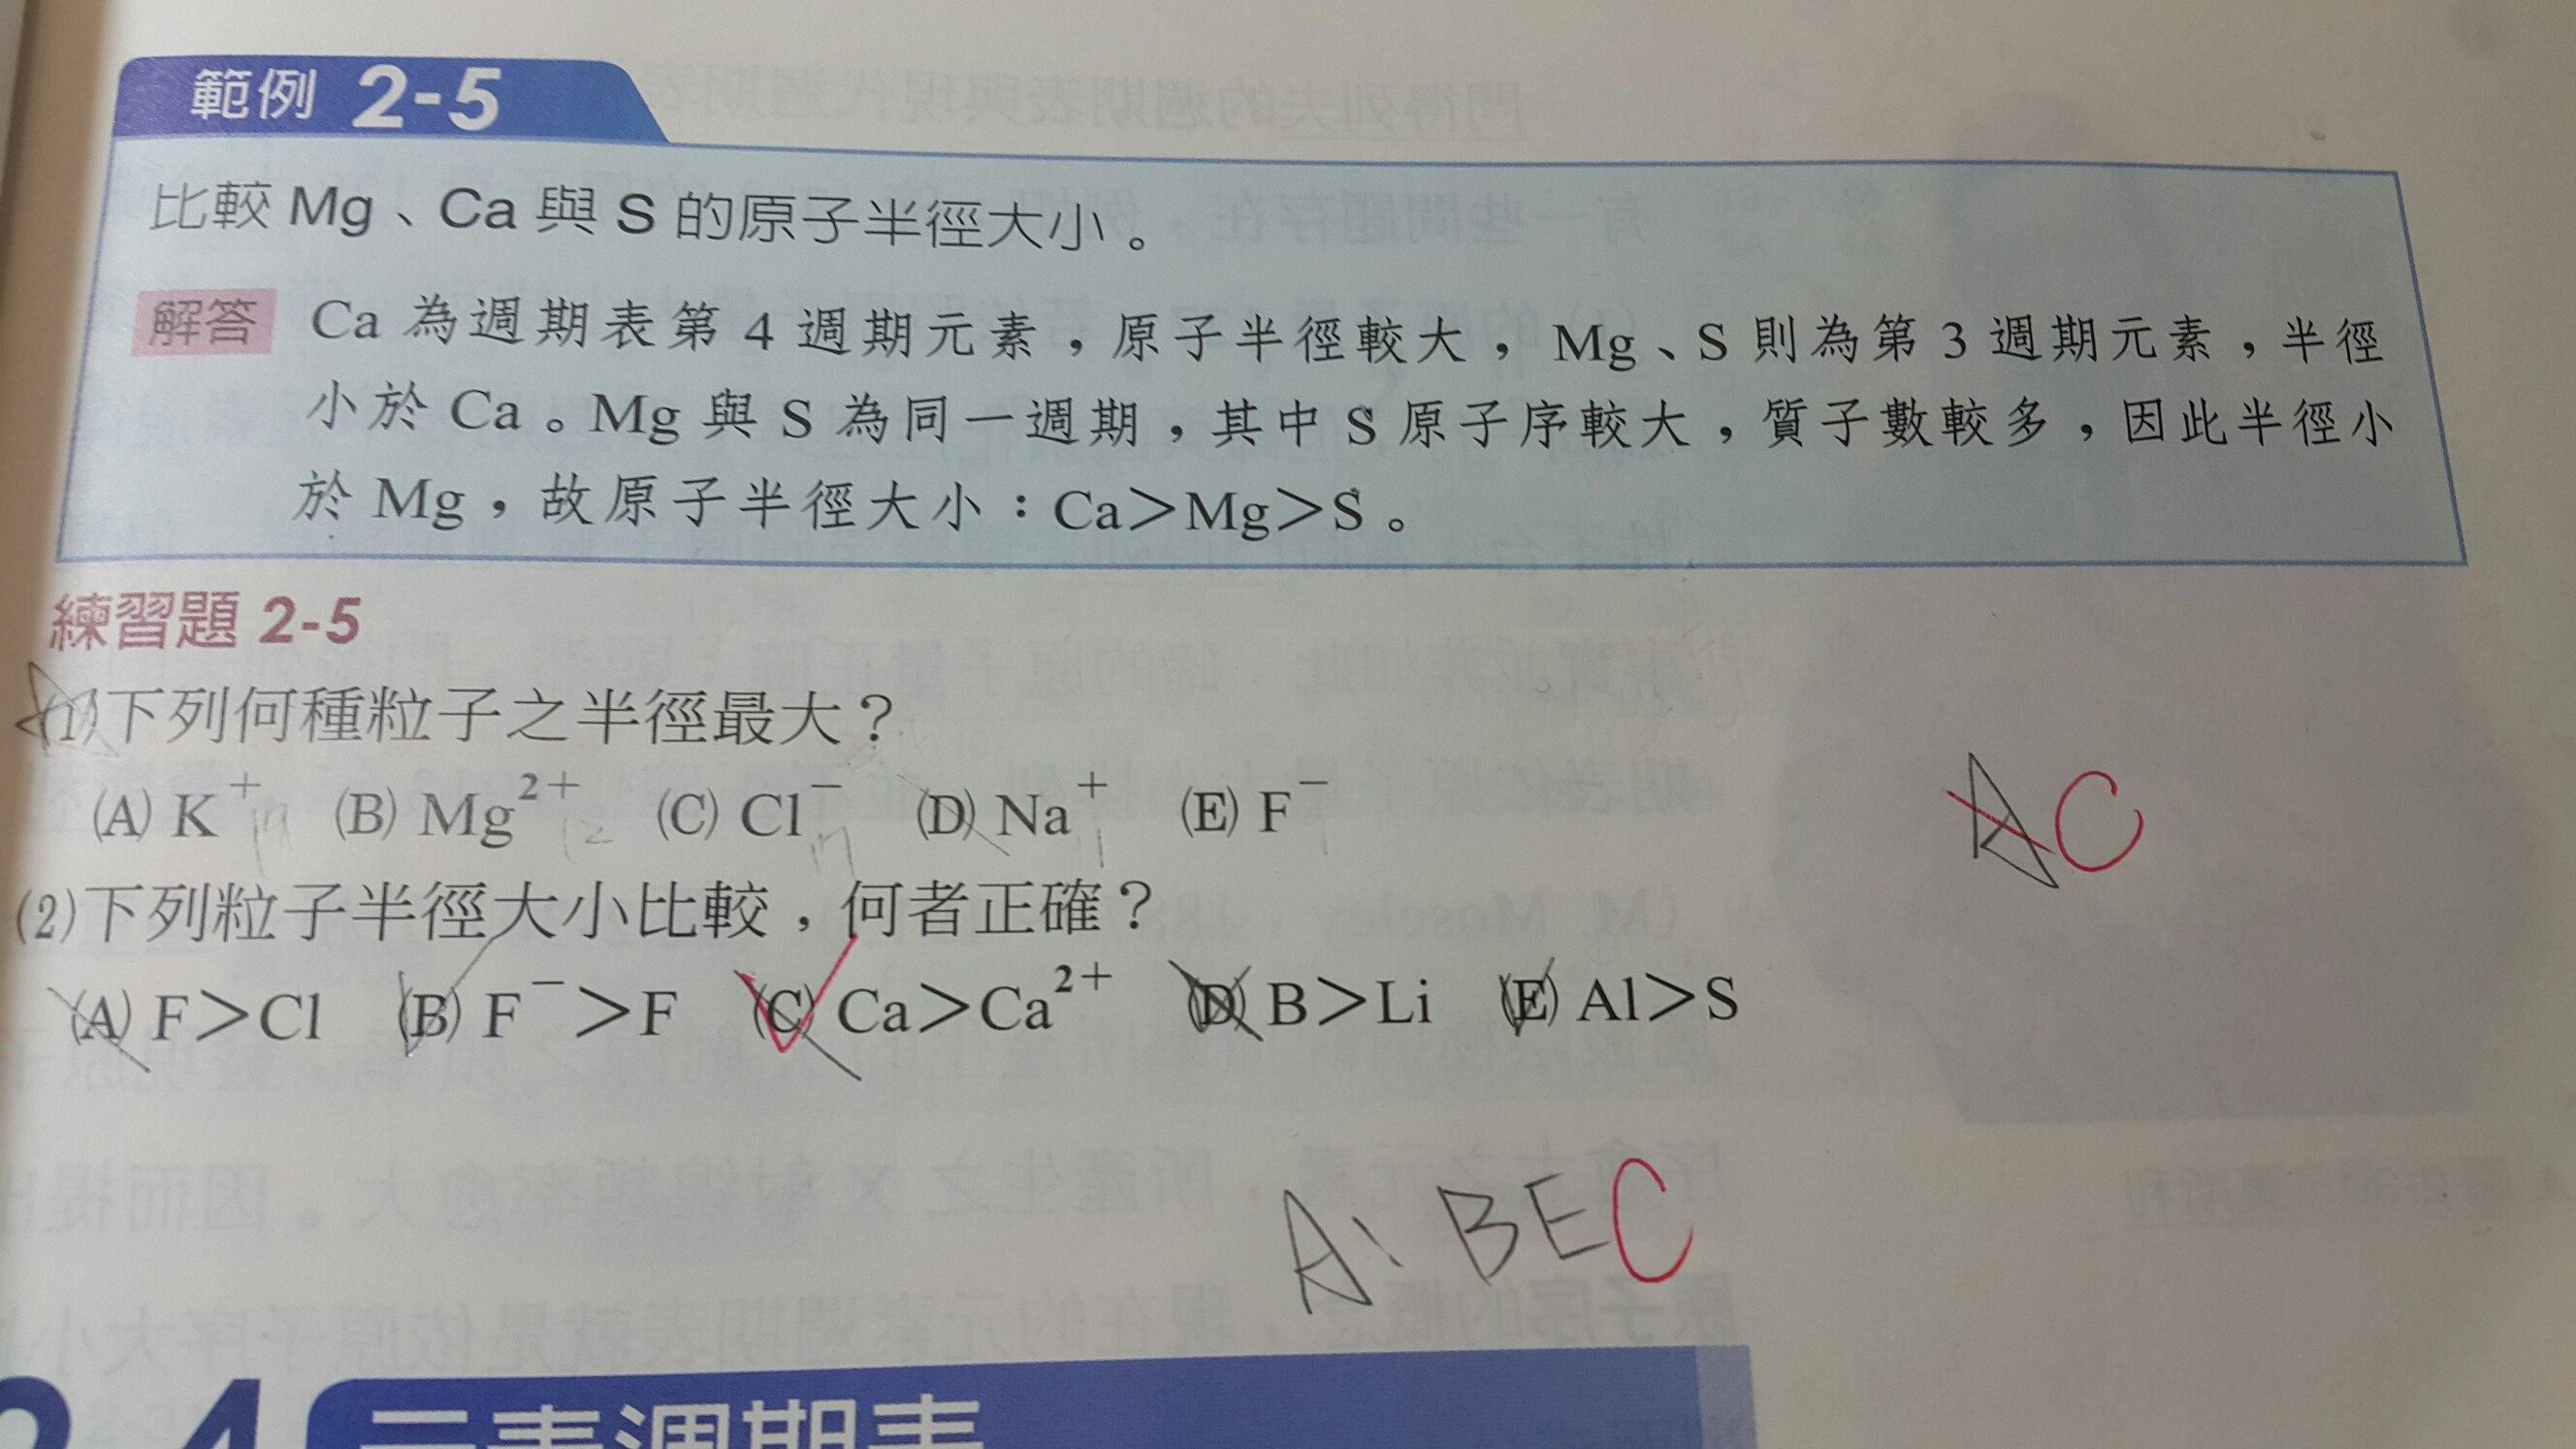 範例 2-5
比較 Mg、Ca 與 S 的原子半徑大小。
解答 Ca 為週期表第 4 週期元素，原子半徑較大，Mg、S 則為第 3 週期元素，半徑
小於 Ca。Mg 與 S 為同一週期，其中 S 原子序較大，質子數較多，因此半徑小
於 Mg，故原子半徑大小：Ca＞Mg＞S。
練習題 2-5
(1)下列何種粒子之半徑最大？
(A) K⁺ (B) Mg²⁺ (C) Cl⁻ (D) Na⁺ (E) F⁻
19 12 17 11
A C
(2)下列粒子半徑大小比較，何者正確？
(A) F＞Cl (B) F⁻＞F (C) Ca＞Ca²⁺ (D) B＞Li (E) Al＞S
A: BEC
2-4 元素週期表